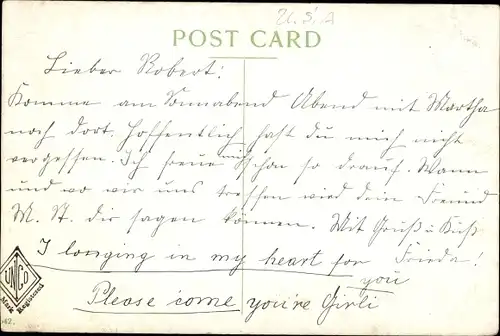 U.S.A
POST CARD
Lieber Robert!
Komme am Sonnabend Abend mit Martha
nach dort. Hoffentlich hast du mich nicht
vergessen. Ich freue mich schon so drauf. Wann
und wo wir uns treffen wird dein Freund
M. St. dir sagen können. Mit Gruß u. Kuß
I longing in my heart for Frieda!
you
Please come you're Girli
UNCO
Mark Registered